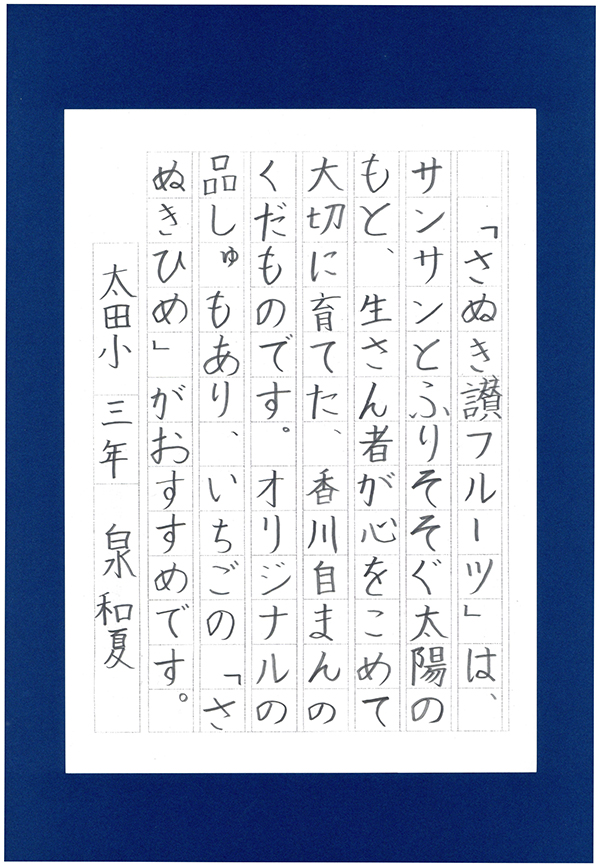 「さぬき讃フルーツ」は、
サンサンとふりそそぐ太陽の
もと、生さん者が心をこめて
大切に育てた、香川自まんの
くだものです。オリジナルの
品しゅもあり、いちごの「さ
ぬきひめ」がおすすめです。
太田小 三年 泉 和夏